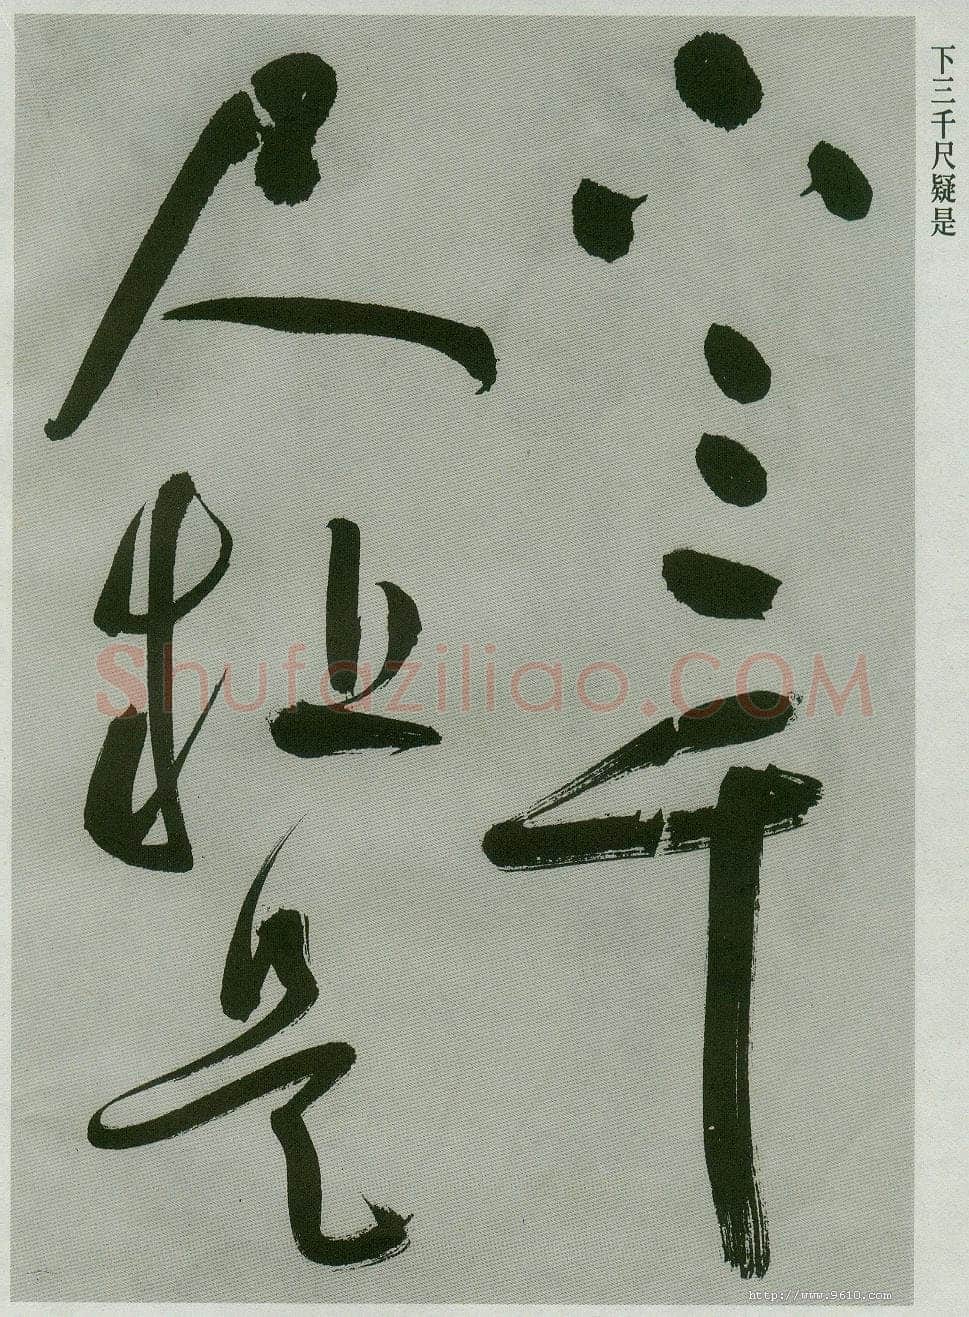 下三千
尺疑是
下三千尺疑是
Shufaziliao.COM
http://www.9610.com